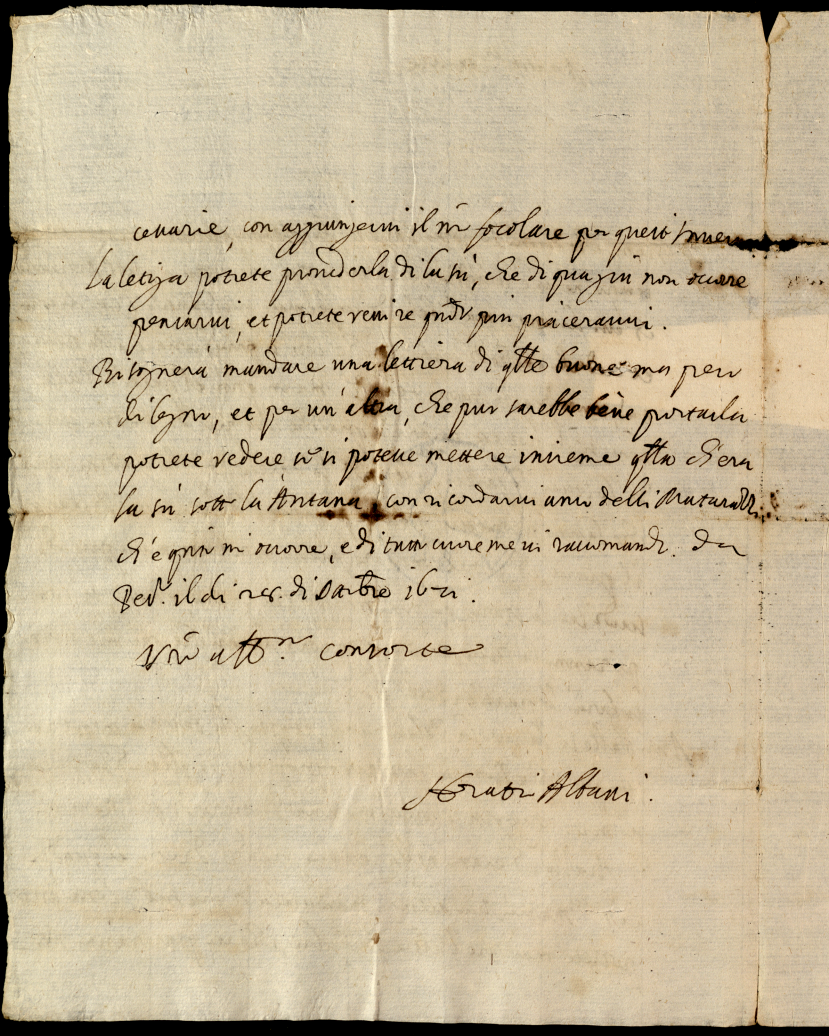 cenarie, con aggiungervi il mio focolare per questi
La letija potrete prenderla di la sù, che di qua giù non ocorre
pensarvi, et potrete venire quãdo più piacerauui.
Bisognerà mandare una lettiera di qlle buone ma però
di legno, et per un'altra, che pur sarebbe bene portarla
potrete vedere se si potesse mettere insieme qlla ch'era
la sù sotto la Antana, con ricordarvi anco delli Matarazzi
ch'è quãto mi ocorre, e di tutto cuore me vi raccomando. da
il di di 16
Vrõ aff.mo consorte
Horatio Albani.